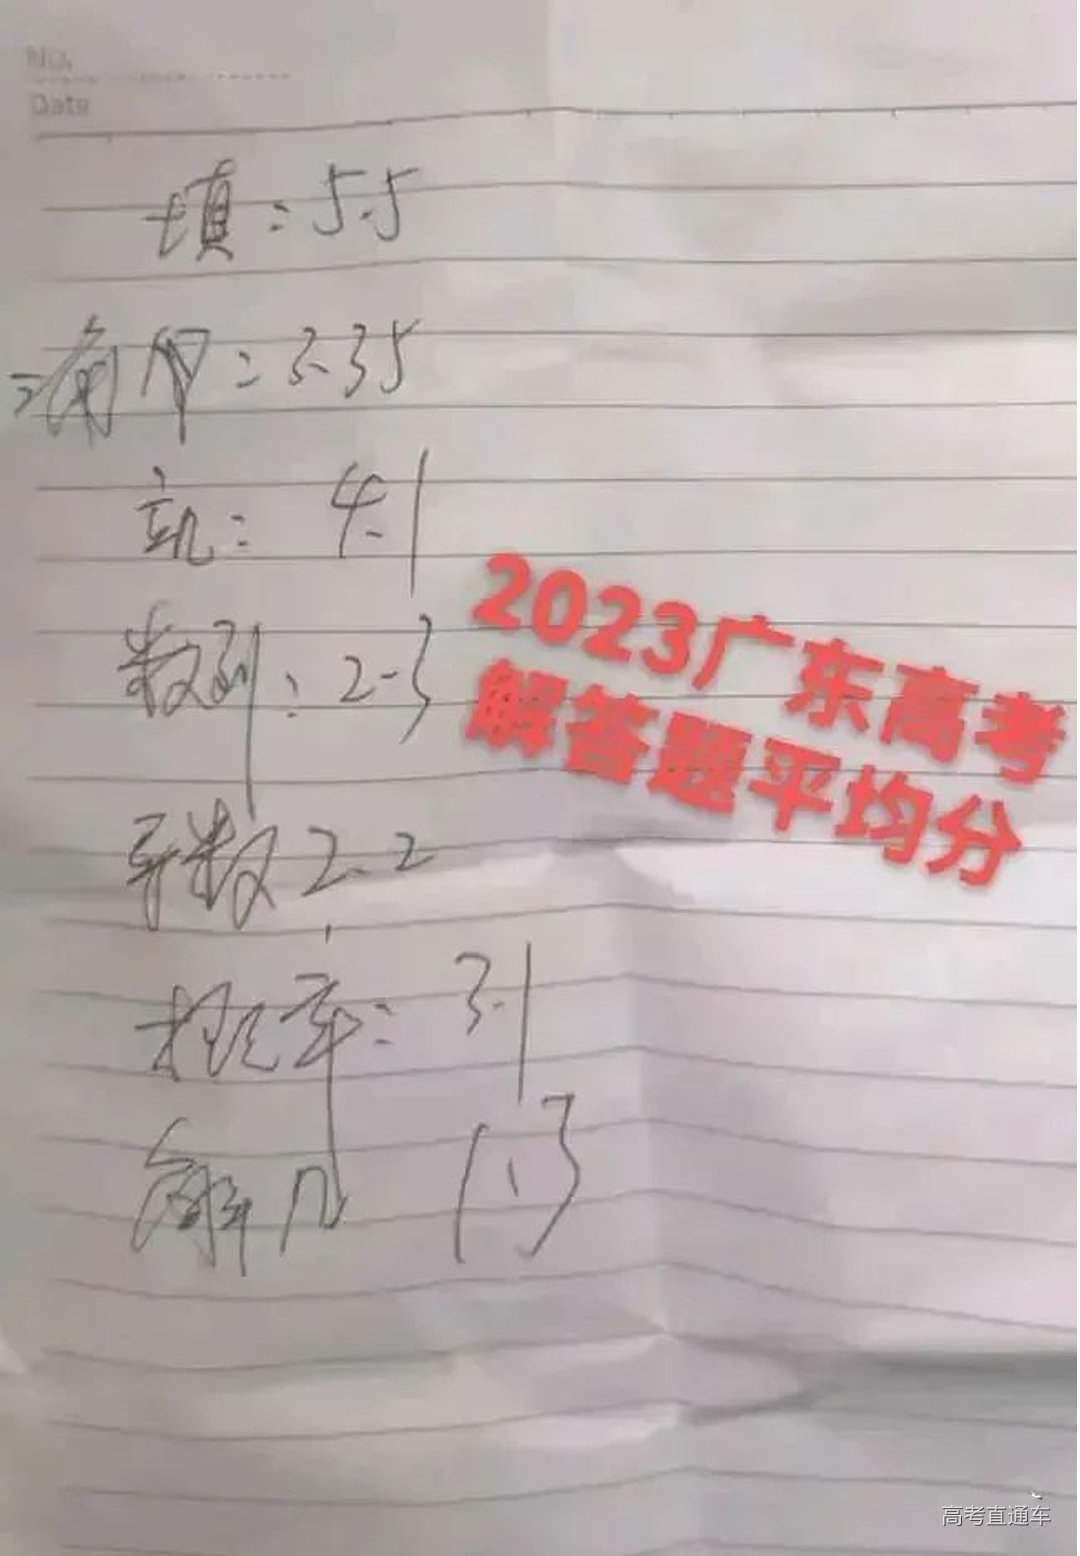 No.
Date
填：5.5
三角甲：3.35
立几：4.1
数列：2.3
导数2.2
概率：3.1
解几 1.3
2023广东高考
解答题平均分
高考直通车